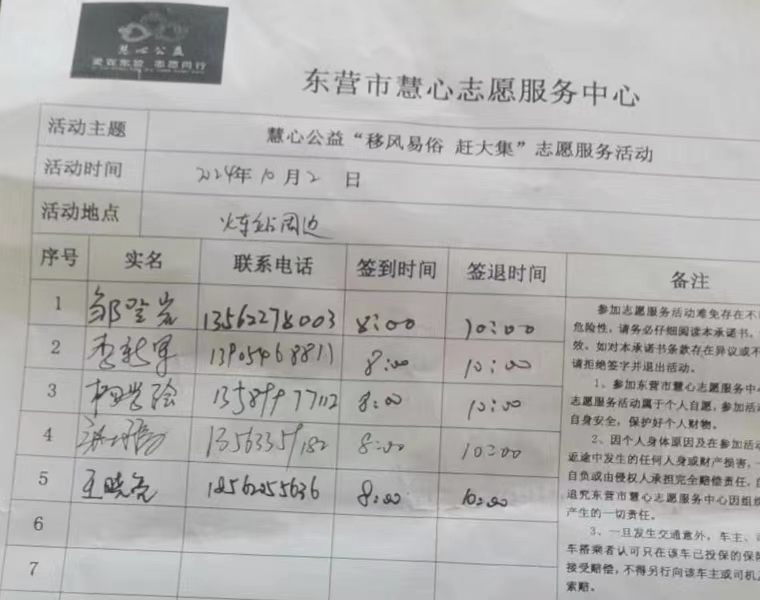 慧心公益
志愿同行
东营市慧心志愿服务中心
活动主题 慧心公益“移风易俗 赶大集”志愿服务活动
活动时间 2024年10月2日
活动地点 火车站周边
序号 实名 联系电话 签到时间 签退时间 备注
1 邹登岩 13562278003 8:00 10:00
2 李新军 8:00 10:00
3 8:00 10:00
4 8:00 10:00
5 王晓亮 8:00 10:00
6
7
参加志愿服务活动难免存在不
危险性,请务必仔细阅读本承诺书。
效。如对本承诺书条款存在异议或不
请拒绝签字并退出活动。
1、参加东营市慧心志愿服务中
志愿服务活动属于个人自愿,参加活
自身安全,保护好个人财物。
2、因个人身体原因及在参加活动
返途中发生的任何人身或财产损害,
自负或由侵权人承担完全赔偿责任,
追究东营市慧心志愿服务中心因组织
产生的一切责任。
3、一旦发生交通意外,车主、
车搭乘者认可只在该车已投保的保
接受赔偿,不得另行向该车主或司机
索赔。